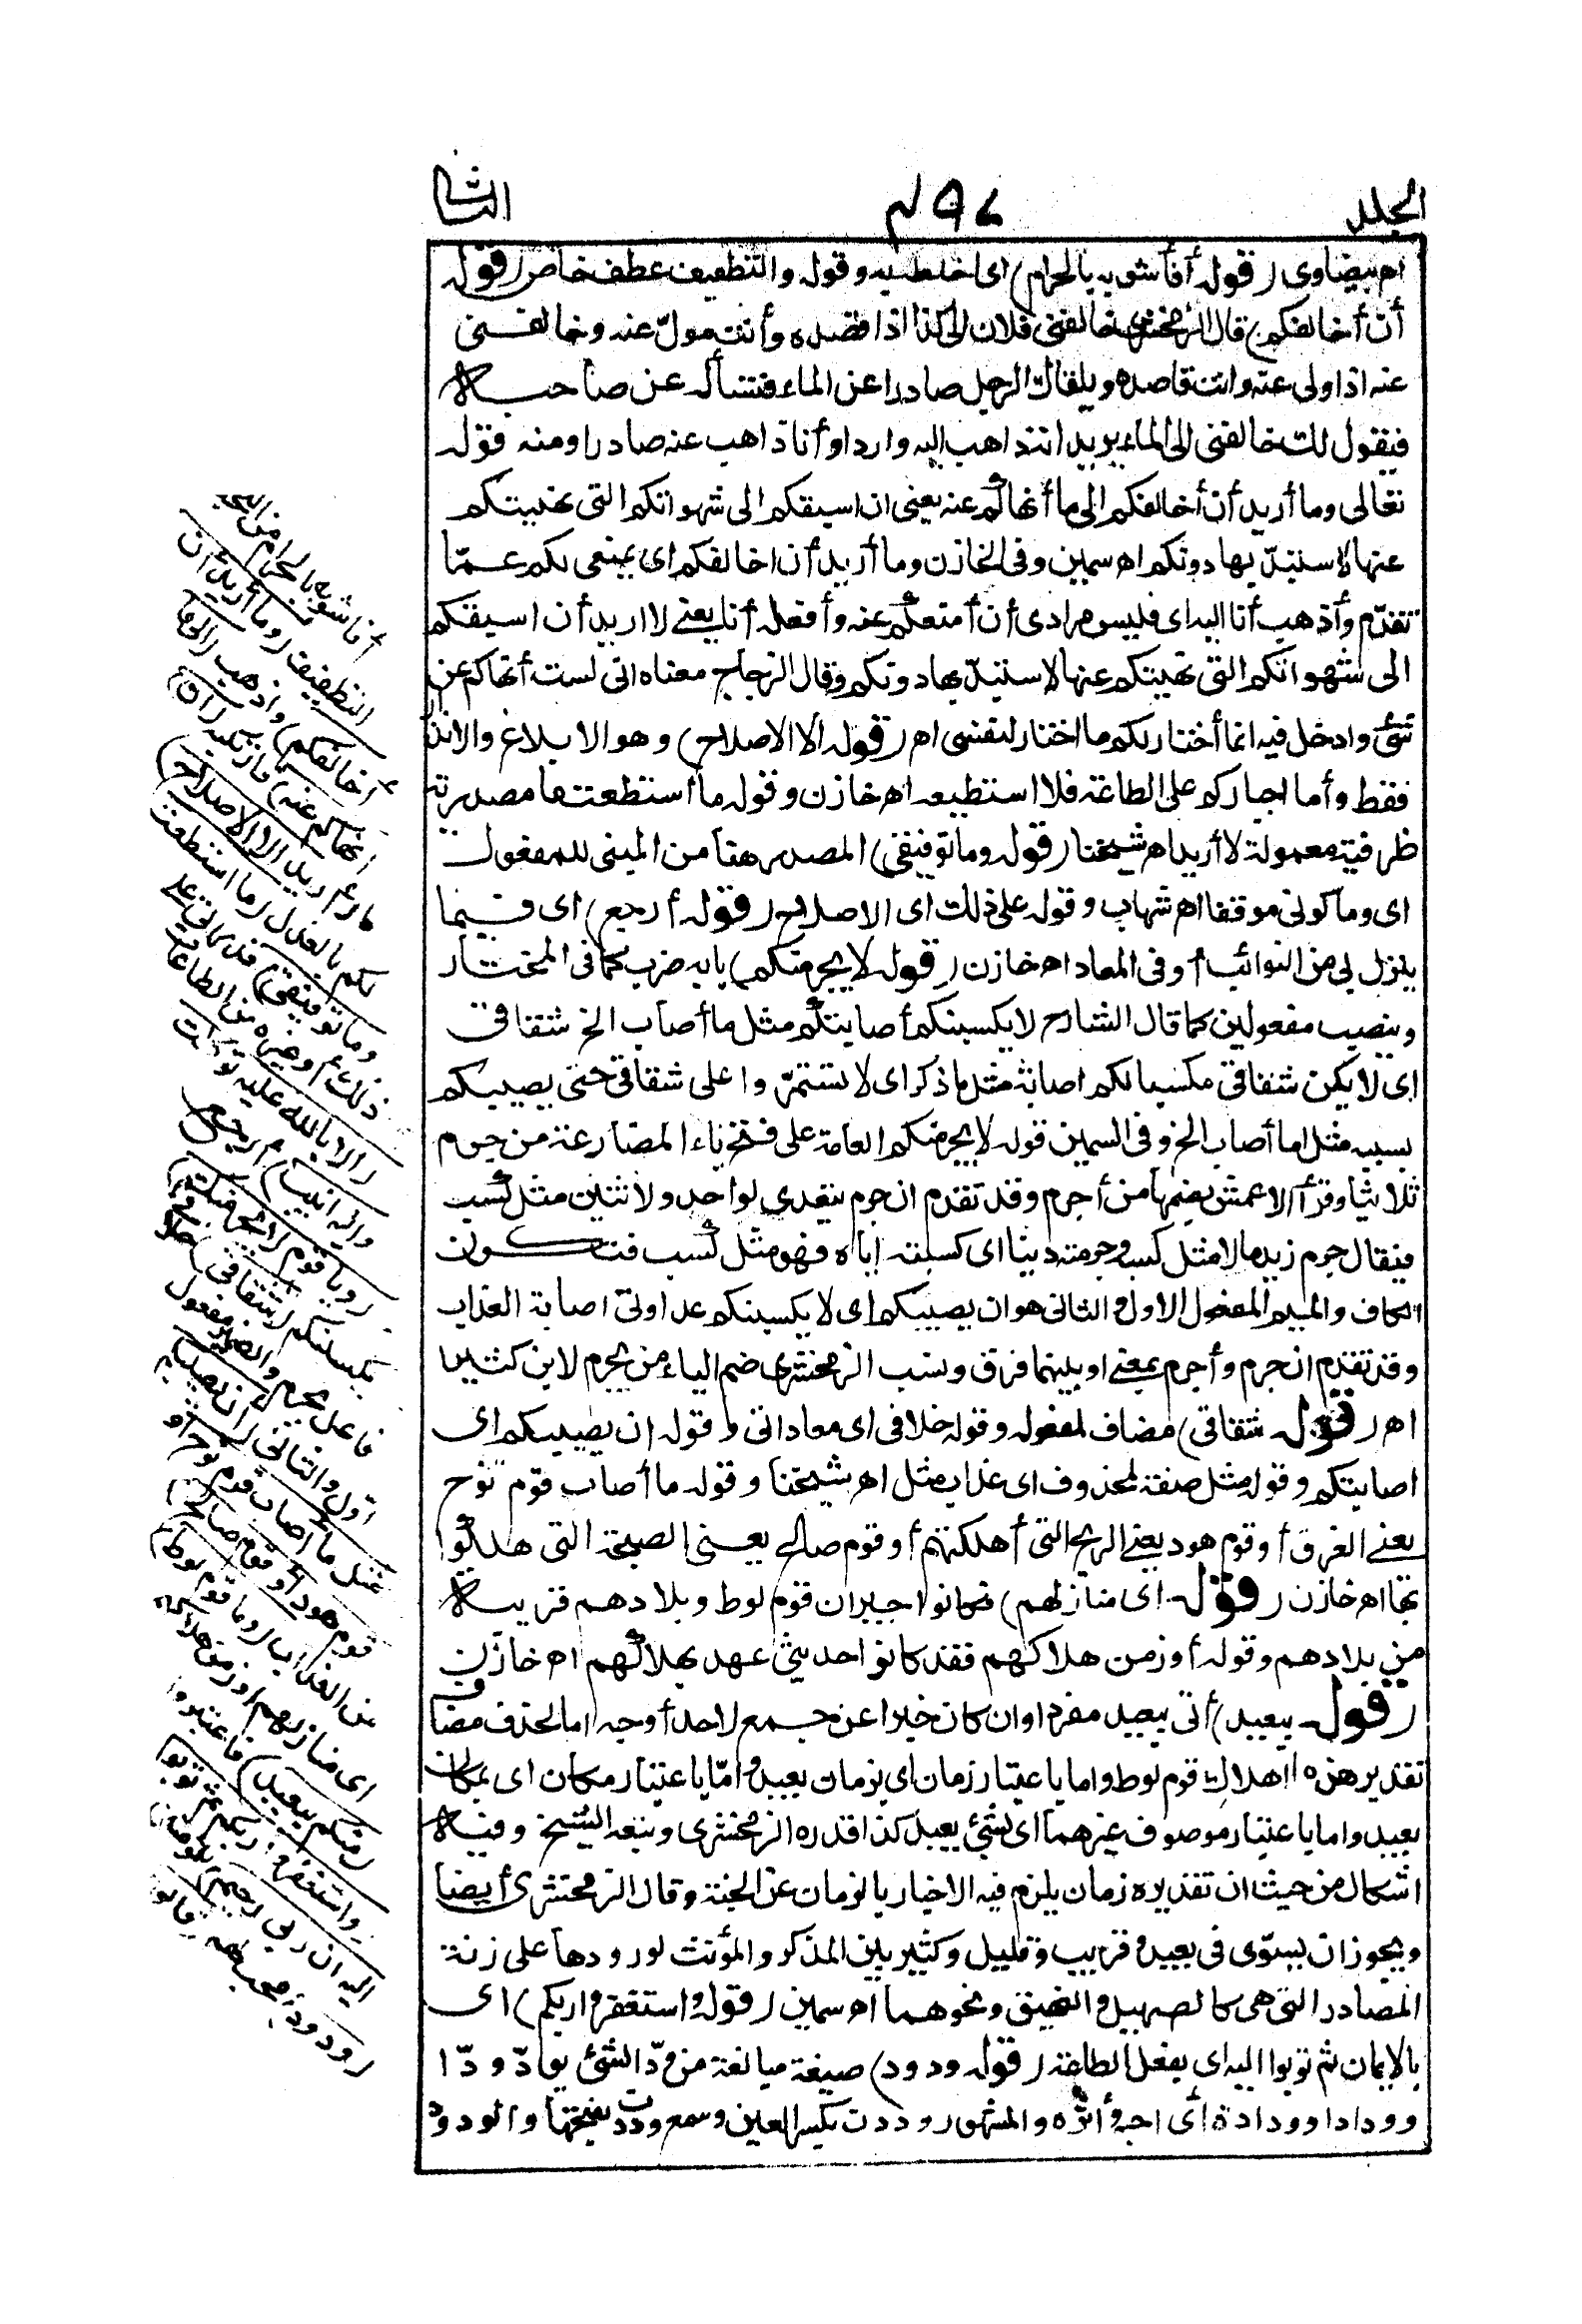 الجلد ٤٩٧ الثانى
اه بيضاوى (قوله أفأشوبه بالحرام) اى اخلطه به وقوله والتطفيف عطف خاص (قوله
أن أخالفكم) قال الزمخشرى خالفنى فلان الى كذا اذا قصده وأنت مولّ عنه وخالفنى
عنه اذا ولى عنه وانت قاصده ويلقاك الرجل صادرا عن الماء فتسأله عن صاحبه
فيقول لك خالفنى الى الماء يريد انه ذاهب اليه واردا وأنا ذاهب عنه صادرا ومنه قوله
تعالى وما أريد أن أخالفكم الى ما أنهاكم عنه يعنى ان اسبقكم الى شهواتكم التى نهيتكم
عنها لاستبدّ بها دونكم اه سمين وفى الخازن وما أريد أن اخالفكم اى بنهى لكم عما
تقدّم وأذهب أنا اليه اى فليس مرادى أن أمنعكم عنه وأفعله أنا يعنى لا اريد أن اسبقكم
الى شهواتكم التى نهيتكم عنها لاستبدّ بها دونكم وقال الزجاج معناه انى لست أنهاكم عن
شئ وادخل فيه انما أختار لكم ما اختار لنفسى اه (قوله الا الاصلاح) وهو الابلاغ والانذار
فقط وأما اجباركم على الطاعة فلا استطيعه اه خازن وقوله ما أستطعت ما مصدرية
ظرفية معمولة لا أريد اه شيخنا (قوله وما توفيقى) المصدر هنا من المبنى للمفعول
اى وما كونى موفقا اه شهاب وقوله على ذلك اى الاصلاح (قوله أرجع) اى فيما
ينزل بى من النوائب أو فى المعاد اه خازن (قوله لا يجرمنكم) بابه ضرب كما فى المختار
وينصب مفعولين كما قال الشارح لا يكسبنكم أصابتكم مثل ما أصاب الخ شقاقى
اى لا يكن شقاقى مكسبا لكم اصابة مثل ما ذكر اى لا تستمرّوا على شقاقى حتى يصيبكم
بسببه مثل ما أصاب الخ وفى السمين قوله لا يجرمنكم العامة على فتح ياء المضارعة من جرم
ثلاثيا وقرأ الاعمش بضمها من أجرم وقد تقدم ان جرم يتعدى لواحد ولاثنين مثل كسب
فيقال جرم زيد مالا مثل كسبه وجرمته ذنبا اى كسبته اياه فهو مثل كسب فتكون
الكاف والميم المفعول الاول والثانى هو ان يصيبكم اى لا يكسبنكم عداوتى اصابة العذاب
وقد تقدم ان جرم وأجرم بمعنى او بينهما فرق ونسب الزمخشرى ضم الياء من يجرم لابن كثير
اه (قوله شقاقى) مضاف لمفعوله وقوله خلافى اى معاداتى وقوله ان يصيبكم اى
اصابتكم وقوله مثل صفة لمحذوف اى عذاب مثل اه شيخنا وقوله ما أصاب قوم نوح
يعنى الغرق أو قوم هود يعنى الريح التى أهلكتهم أو قوم صالح يعنى الصيحة التى هلكوا
بها اه خازن (قوله اى منازلهم) فكانوا جيران قوم لوط وبلادهم قريبة
من بلادهم وقوله أو زمن هلاكهم فقد كانوا حديثى عهد بهلاكهم اه خازن
(قوله ببعيد) أتى ببعيد مفردا وان كان خبرا عن جمع لاحد أوجه اما لحذف مضاف
تقديره هذه اهلاك قوم لوط واما باعتبار زمان اى بزمان بعيد وامّا باعتبار مكان اى بمكان
بعيد واما باعتبار موصوف غيرهما اى بشئ بعيد كذا قدره الزمخشرى وتبعه الشيخ وفيه
اشكال من حيث ان تقديره زمان يلزم فيه الاخبار بالزمان عن الجثة وقال الزمخشرى أيضا
ويجوز ان يسوّى فى بعيد وقريب وقليل وكثير بين المذكر والمؤنث لورودها على زنة
المصادر التى هى كالصهيل والنهيق ونحوهما اه سمين (قوله واستغفروا ربكم) اى
بالايمان ثم توبوا اليه اى بفعل الطاعة (قوله ودود) صيغة مبالغة من ودّ الشئ يودّ ودّا
وودادا وودادة اى احبه وأثره والمشهور وددت بكسر العين وسمع وددت بفتحها والودود
أفأشوبه بالحرام من البخس
والتطفيف (وما أريد أن
أخالفكم) وأذهب (الى ما
أنهاكم عنه) فارتكبه (ان)
ما (أريد الا الاصلاح)
لكم بالعدل (ما استطعت
وما توفيقى) قدرتى على
ذلك أو غيره من الطاعات
(الا بالله عليه توكلت
واليه انيب) أرجع
(ويا قوم لا يجرمنكم)
يكسبنكم (شقاقى) خلافى
فاعل يجرم والضمير مفعول
أول والثانى (ان يصيبكم
مثل ما أصاب قوم نوح أو
قوم هود أو قوم صالح)
من العذاب (وما قوم لوط)
اى منازلهم او زمن هلاكهم
(منكم ببعيد) فاعتبروا
(واستغفروا ربكم ثم توبوا
اليه ان ربى رحيم) بالمؤمنين
(ودود) محب لهم (قالوا